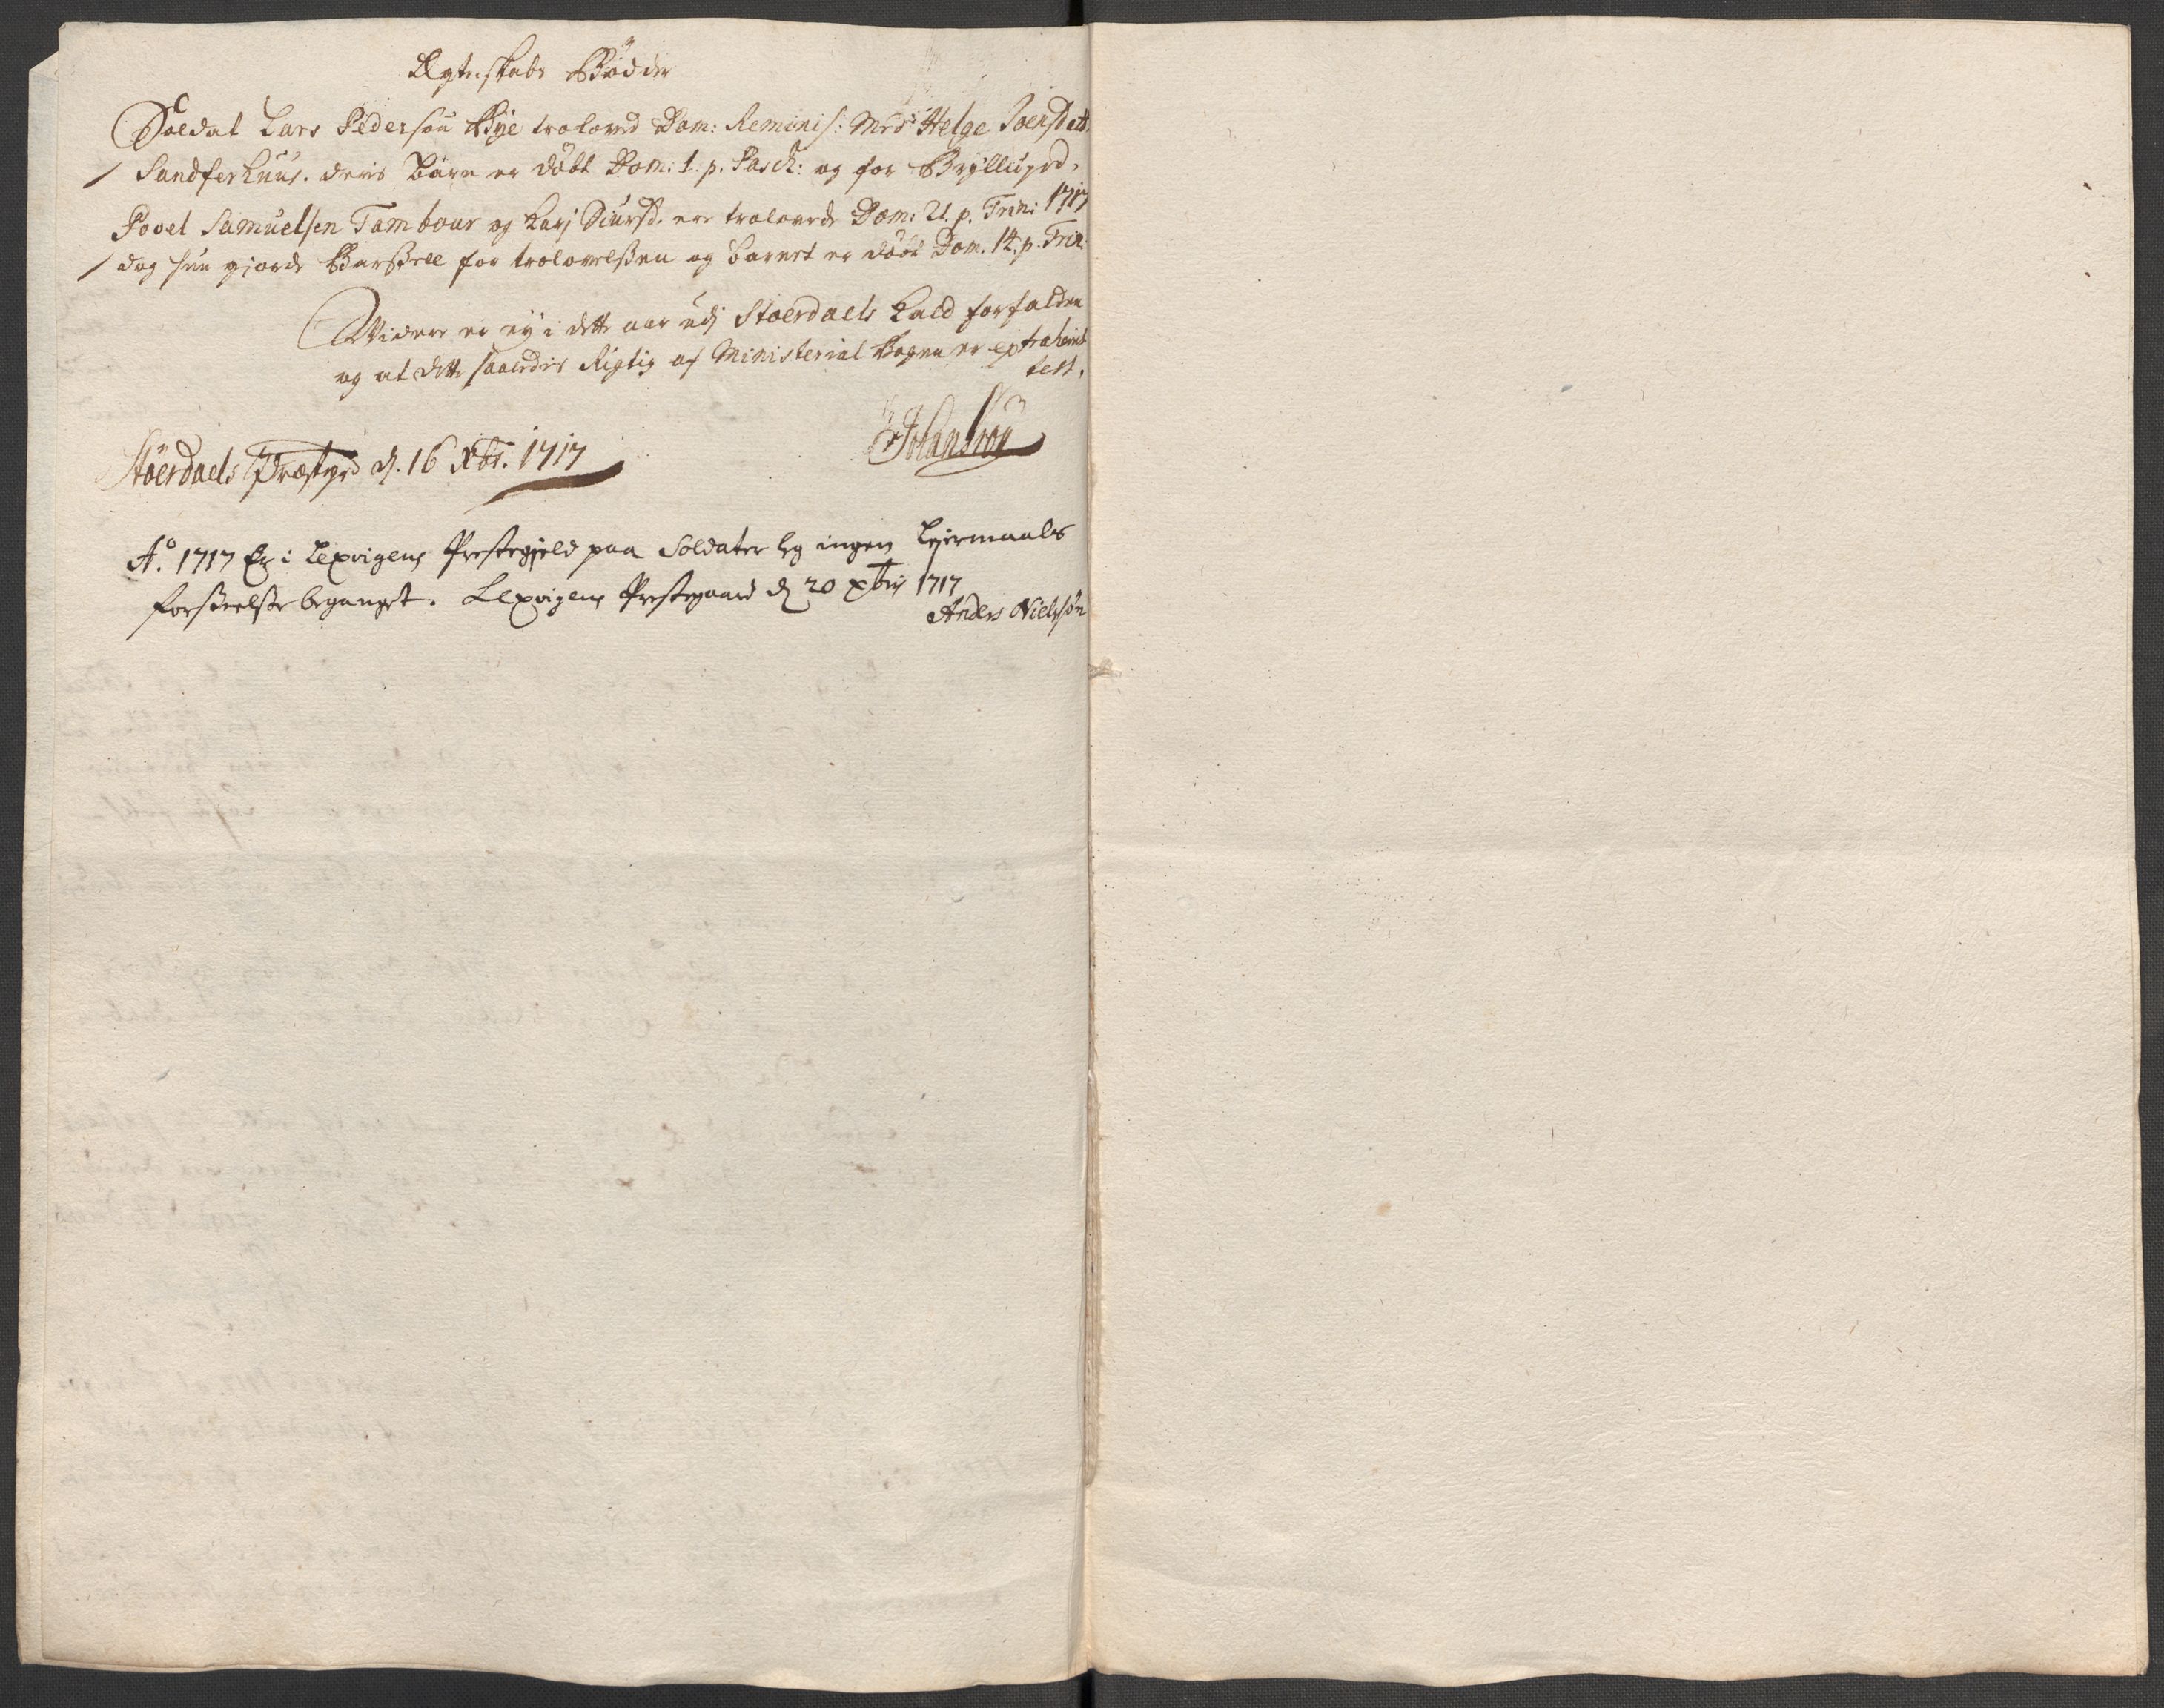 Ægteskabs Bøder
Soldat Lars Pedersøn Bye troloved Dom: Reminis: Med Helge Joensdatt.
Sandferhuus. deris Barn er døbt Dom: 1. p. Pasch: og for Brylluped.
Povel Samuelsen Tambour og Karj Siursd. ere trolovede Dom: 21. p. Trin: 1717
dog hun giorde Barsell for trolovelsen og barnet er døbt Dom. 14. p. Trin.
Widere er ey i dette aar udj Støerdaels Kald forfalden
og at dette saaledis Rigtig af Ministerial Bogen er extraherit
test.
Støerdaels Præstegrd d. 16 Xbr. 1717
A.o 1717 Er i Lexvigens Prestegield paa Soldater læg ingen Leyermaals
forseelse beganget. Lexvigens Prestegaard d 20 xbris 1717
Anders Nielssøn